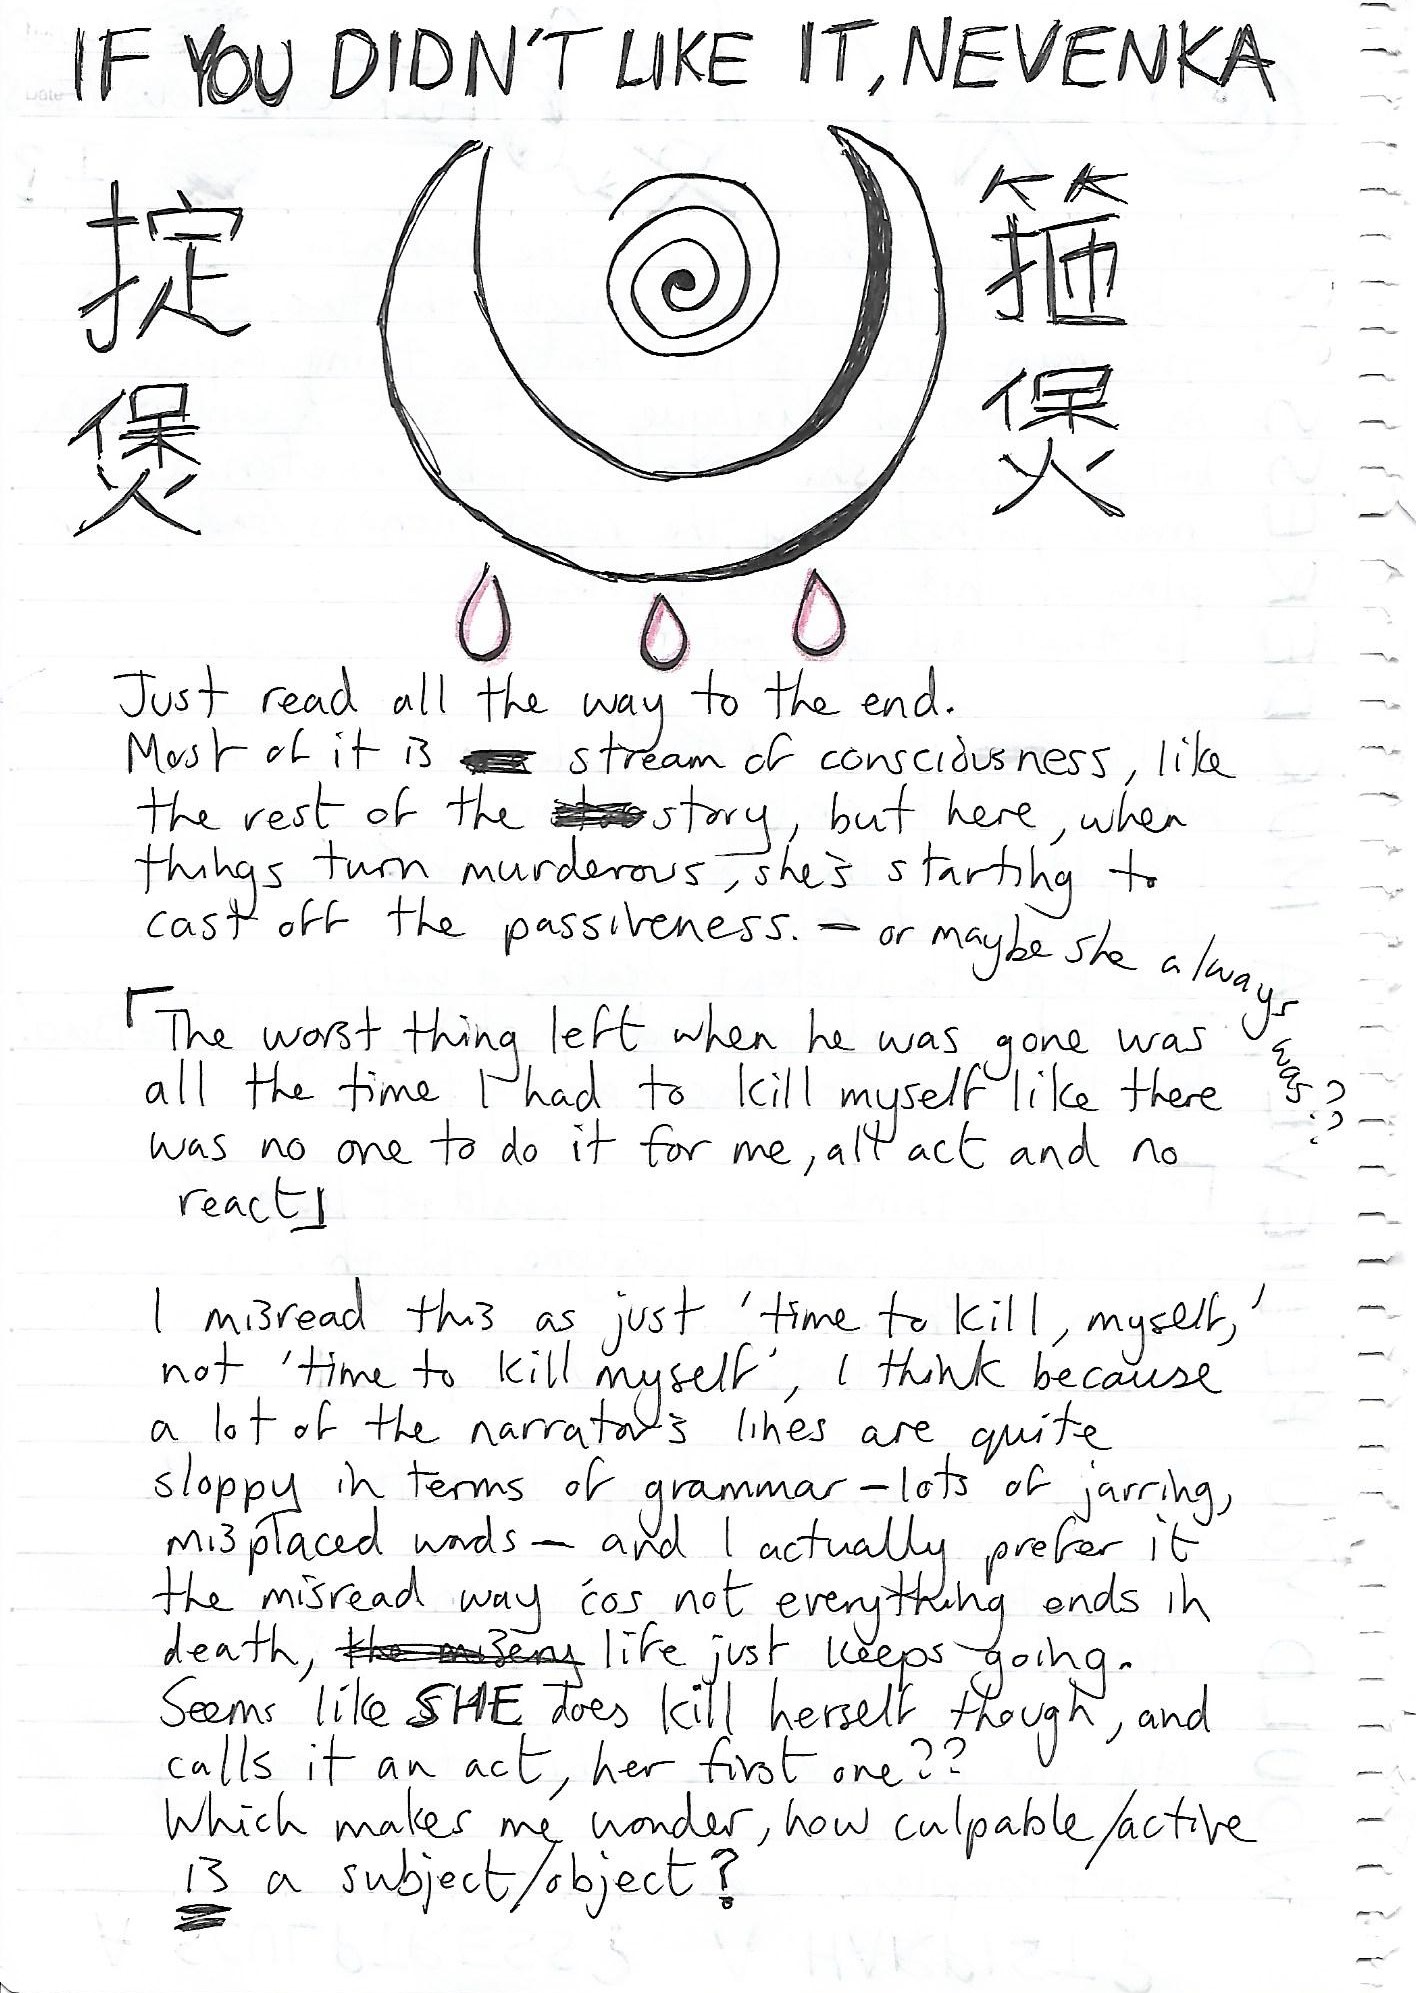 IF YOU DIDN'T LIKE IT, NEVENKA
掟煲
箍煲
Just read all the way to the end.
Most of it is stream of consciousness, like
the rest of the story, but here, when
things turn murderous, she's starting to
cast off the passiveness. – or maybe she always was??
「The worst thing left when he was gone was
all the time I had to kill myself like there
was no one to do it for me, all act and no
react」
I misread this as just 'time to kill, myself,'
not 'time to kill myself', I think because
a lot of the narrator's lines are quite
sloppy in terms of grammar – lots of jarring,
misplaced words – and I actually prefer it
the misread way 'cos not everything ends in
death, life just keeps going.
Seems like SHE does kill herself though, and
calls it an act, her first one??
Which makes me wonder, how culpable/active
is a subject/object?